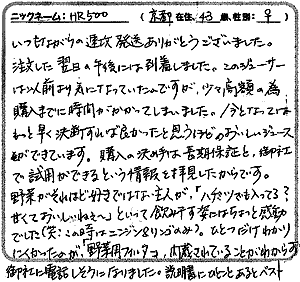 ニックネーム:HR500 （京都 在住、43歳、性別:♀）
いつもながらの迅速発送ありがとうございました。
注文した翌日の午後には到着しました。このジューサー
は以前より気になっていたのですが、少々高額の為
購入までに時間がかかってしまいました。今となっては
もっと早く決断すれば良かったと思うほどのおいしいジュース
ができています。購入の決め手は長期保証と、御社
で試用ができるという情報を拝見したからです。
野菜がそれほど好きではない主人が、「ハチミツでも入ってる?
甘くておいしいねぇ〜」といって飲み干す姿にはちょっと感動
でした(笑:この時はニンジン&リンゴのみ)。ひとつだけわかり
にくかったのが、「野菜用フィルター」、内蔵されていることがわからず
御社に電話しそうになりました。説明書にひとことあるとベスト